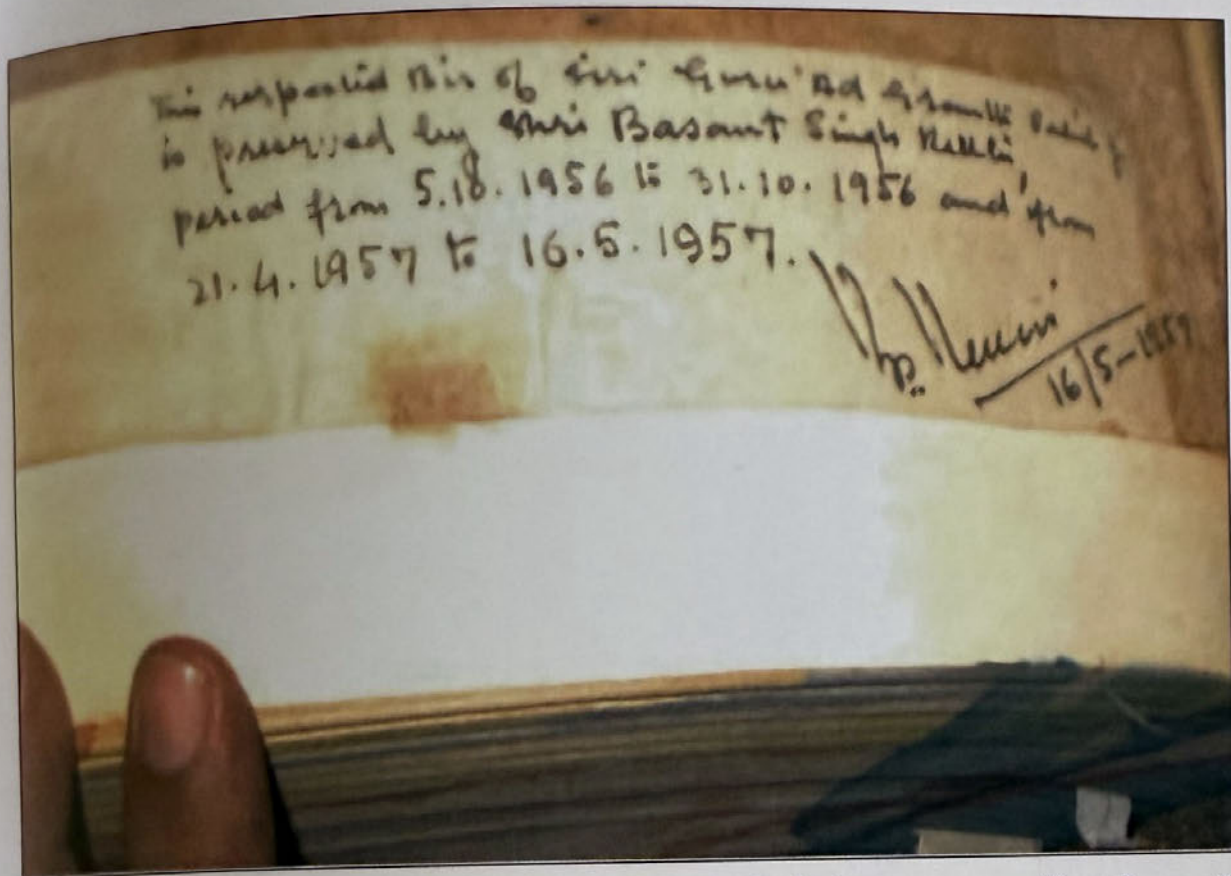 This respected Bir of Siri Guru Granth Sahib
is preserved by Shri Basant Singh
period from 5.10.1956 to 31.10.1956 and from
21.4.1957 to 16.5.1957.
16/5-1957